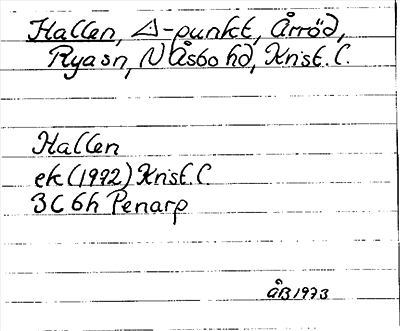 Hallen, △-punkt, Årröd,
Rya sn, N Åsbo hd, Krist. L.
Hallen
ek (1972) Krist. L
3C 6h Penarp
ÅB 1973